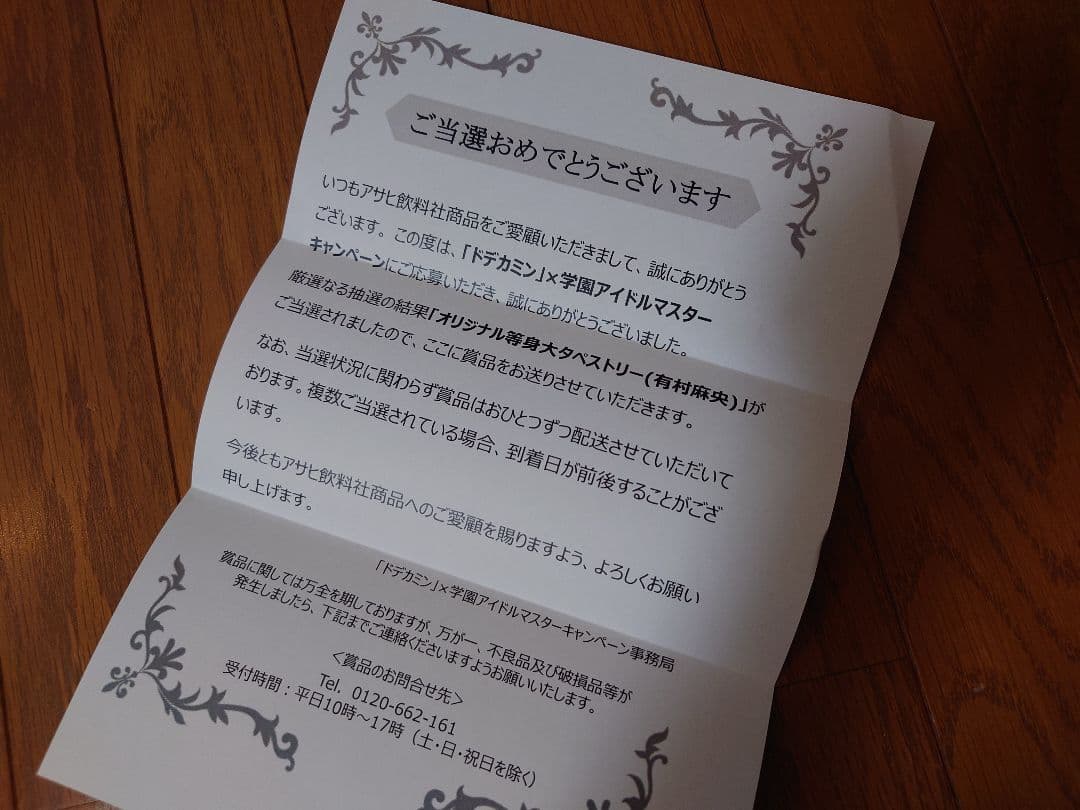 ご当選おめでとうございます
いつもアサヒ飲料社商品をご愛顧いただきまして、誠にありがとう
ございます。この度は、「ドデカミン」×学園アイドルマスター
キャンペーンにご応募いただき、誠にありがとうございました。
厳選なる抽選の結果「オリジナル等身大タペストリー(有村麻央)」が
ご当選されましたので、ここに賞品をお送りさせていただきます。
なお、当選状況に関わらず賞品はおひとつずつ配送させていただいて
おります。複数ご当選されている場合、到着日が前後することがござ
います。
今後ともアサヒ飲料社商品へのご愛顧を賜りますよう、よろしくお願い
申し上げます。
「ドデカミン」×学園アイドルマスターキャンペーン事務局
賞品に関しては万全を期しておりますが、万が一、不良品及び破損品等が
発生しましたら、下記までご連絡くださいますようお願いいたします。
＜賞品のお問合せ先＞
Tel. 0120-662-161
受付時間：平日10時～17時（土・日・祝日を除く）